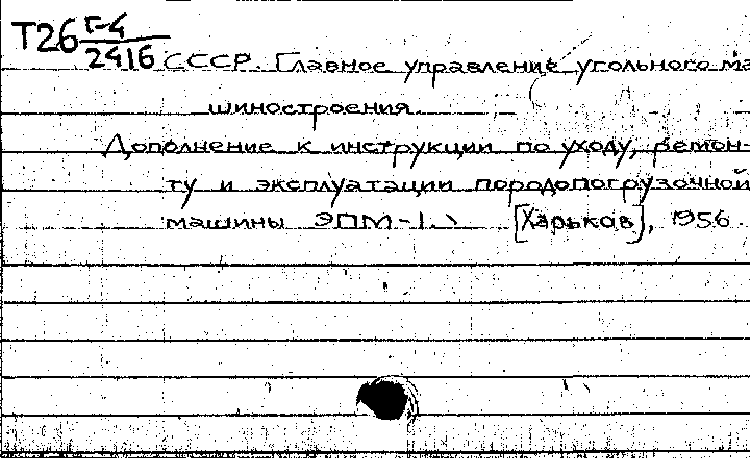 Т26 Г-4
2416 СССР. Главное управление угольного ма
шиностроения.
Дополнение к инструкции по уходу, ремон-
ту и эксплуатации породопогрузочной
машины ЭПМ-1. [Харьков], 1956.